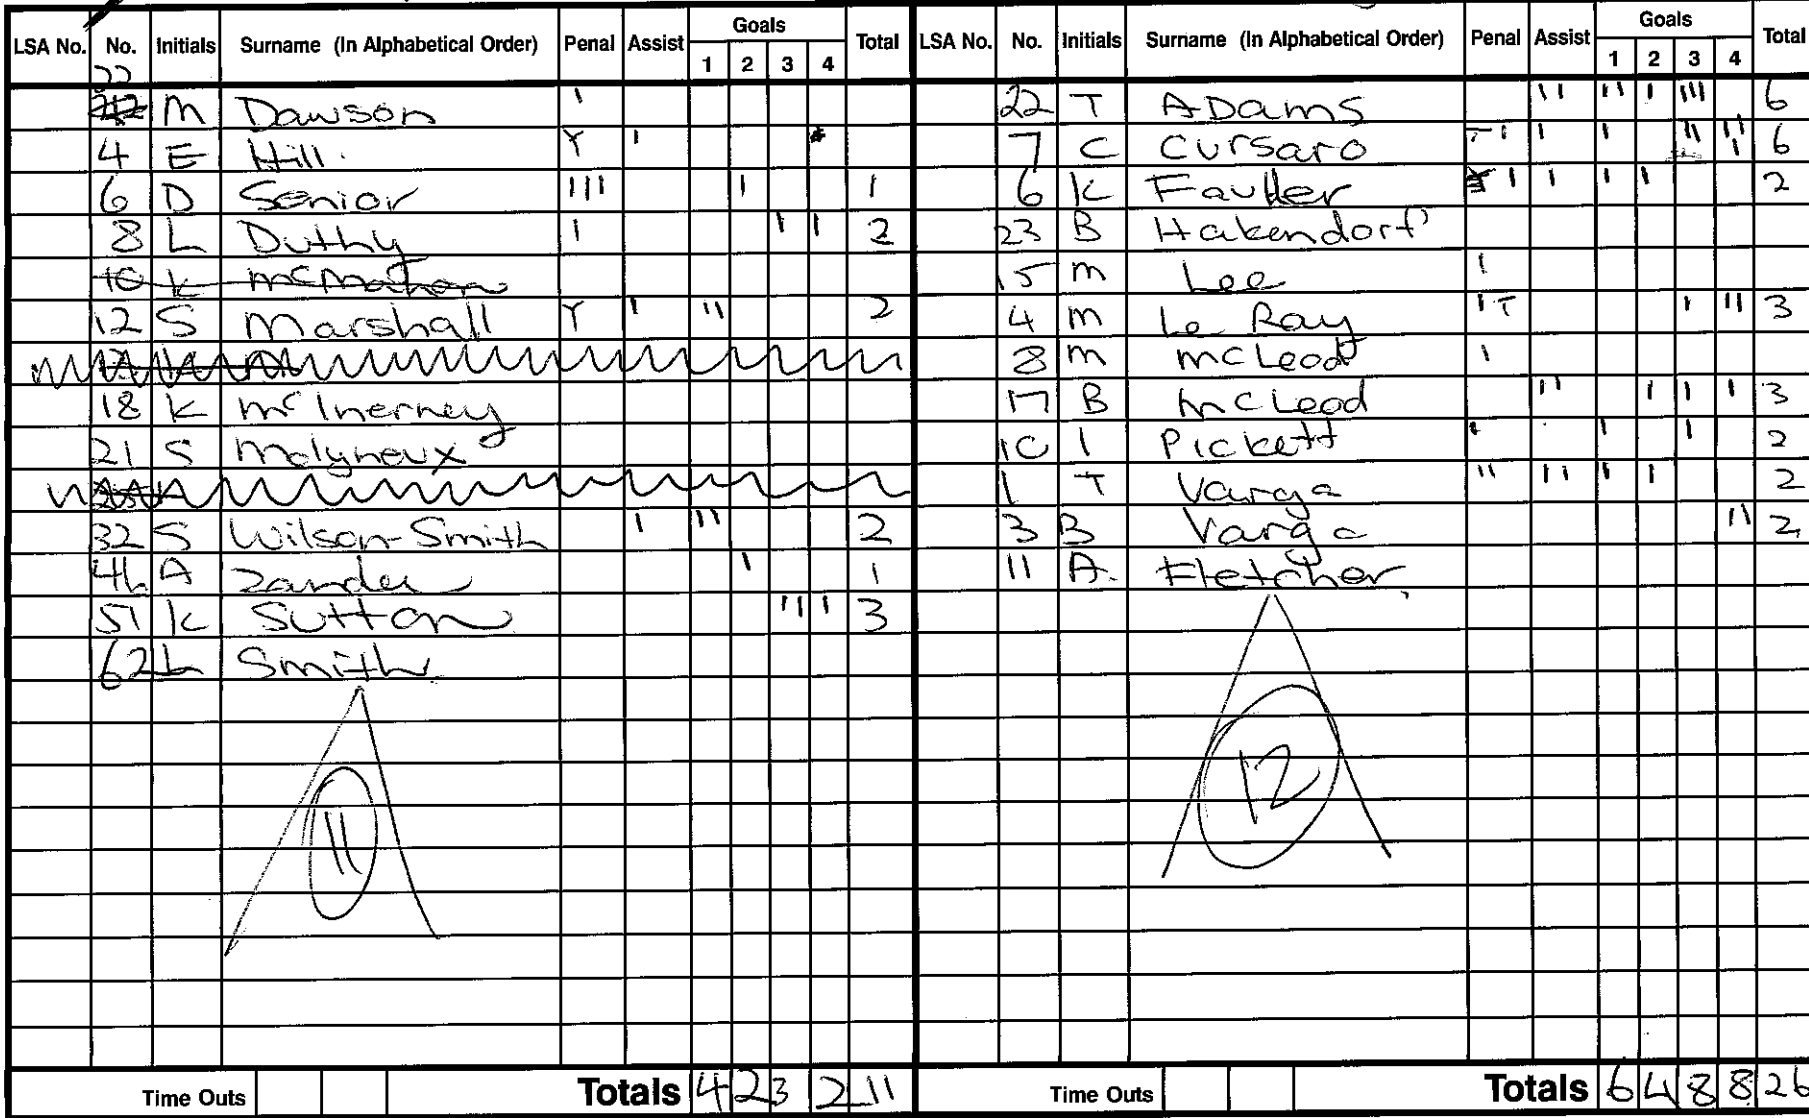 LSA No. No. Initials Surname (In Alphabetical Order) Penal Assist Goals 1 2 3 4 Total
22 M Dawson '
4 E Hill. Y '
6 D Senior ''' ' 1
8 L Duthy ' ' ' 2
10 K McMahon
12 S Marshall Y ' '' 2
18 K McInerney
21 S Molyneux
32 S Wilson-Smith ' '' 2
46 A Zander ' 1
51 K Sutton '' ' 3
62 L Smith
11
Time Outs Totals 4 2 3 2 11
LSA No. No. Initials Surname (In Alphabetical Order) Penal Assist Goals 1 2 3 4 Total
22 T ADams '' '' ' ''' 6
7 C Cursaro T ' ' ' '' ''' 6
6 K Faulter ' ' ' ' 2
23 B Hakendorf
15 m Lee '
4 m Le Ray ' T ' '' 3
8 m McLeod '
17 B McLeod '' ' ' ' 3
10 I Pickett ' ' ' 2
1 T Varga '' '' ' ' 2
3 B Varga '' 2
11 A. Fletcher
12
Time Outs Totals 6 4 8 8 26